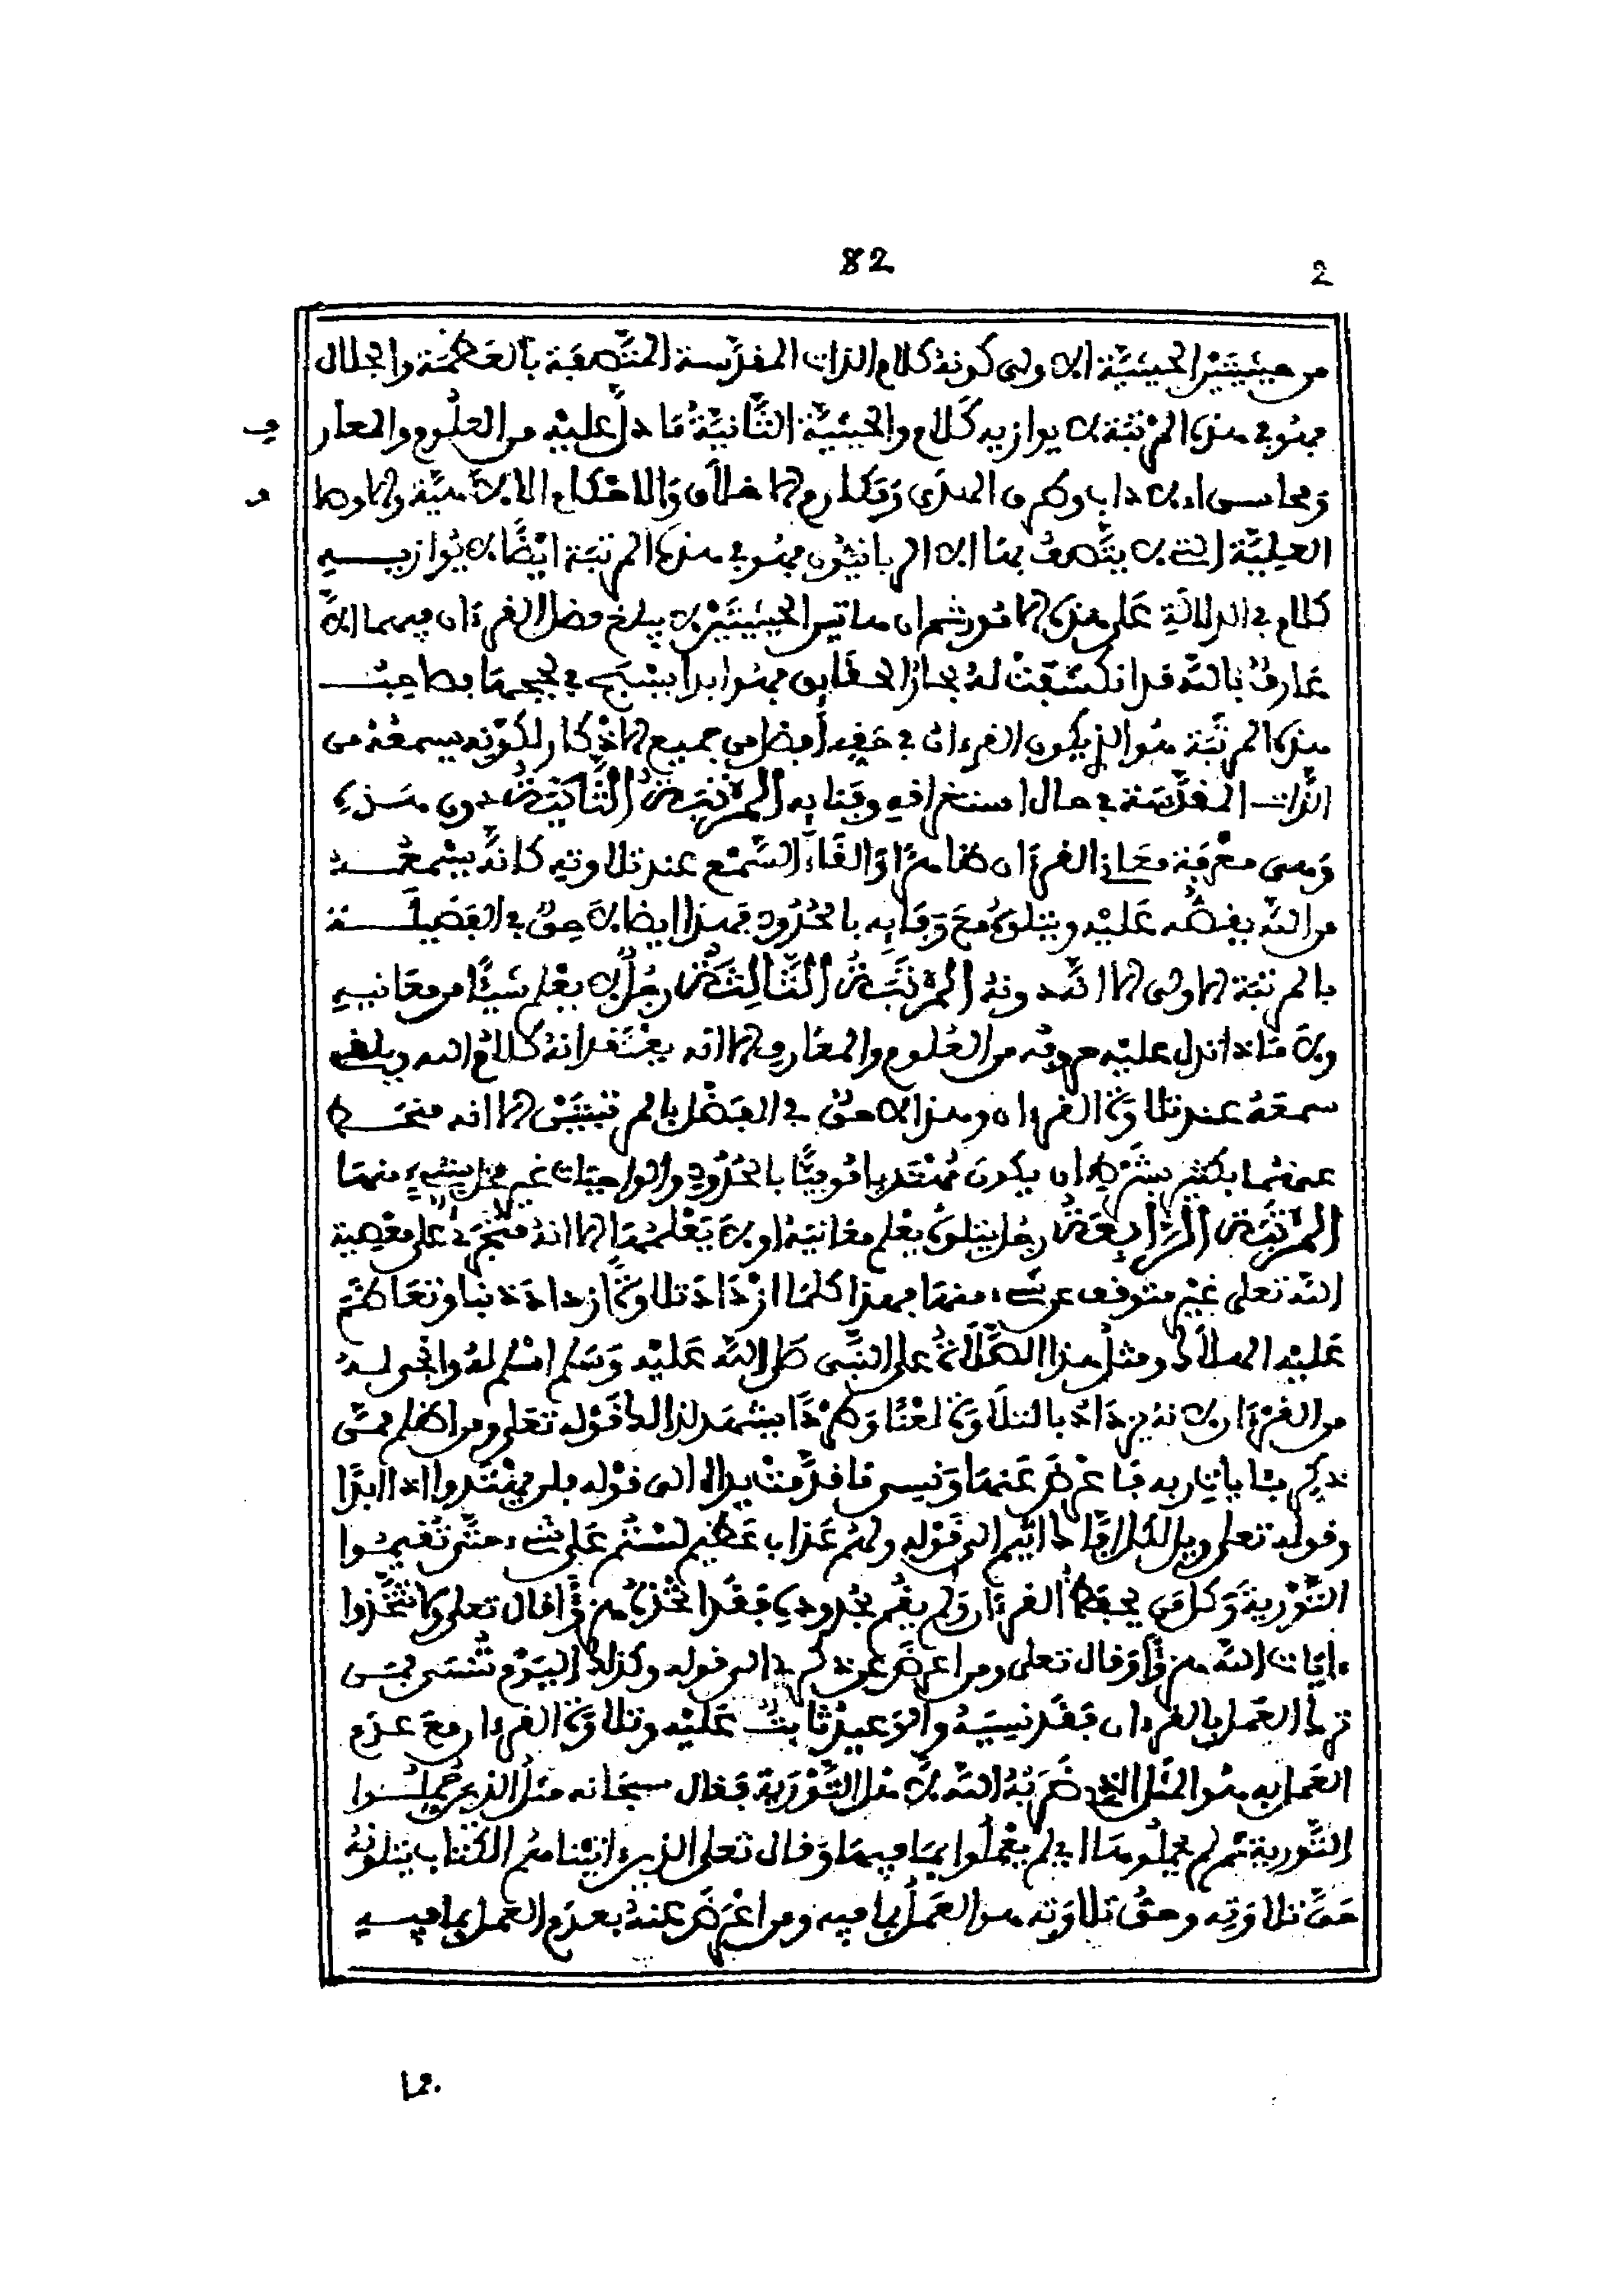 82
2
من حيثيتين الحيثية الاولى كونه كلام الذات المقدسة المتصفة بالعظمة والجلال
فهو في هذه المرتبة لا يوازيه كلام والحيثية الثانية ما دل عليه من العلوم والمعار
ف
ومحاسن الاداب وطرق الهدى ومكارم الاخلاق والاحكام الالاهية والاوصا
ف
العلية التي لا يتصف بها الا الربانيون فهو في هذه المرتبة ايضا لا يوازيه
كلام في الدلالة على هذه الامور ثم ان هاتين الحيثيتين لا يبلغ فضل القرءان فيهما الا
عارف بالله قد انكشفت له بحار الحقايق فهو ابدا يسبح في لججها فصاحب
هذه المرتبة هو الذي يكون القرءان في حقه أفضل من جميع الاذكار لكونه يسمعه من
الذات المقدسة في حال استغراقه وفنايه المرتبة الثانية دون هذه
وهي معرفة معاني القرءان ظاهرا والقاء السمع عند تلاوته كانه يسمعه
من الله يقصه عليه ويتلوه مع وفايه بالحدود فهذا ايضا لاحق في الفضيلة
بالمرتبة الاولى الا انه دونه المرتبة الثالثة رجل لا يعلم شيئا من معانيه
ولا ماذا انزل عليه حروفه من العلوم والمعارف الا انه يعتقد انه كلام الله ويلقى
سمعه عند تلاوة القرءان وهذا لاحق في الفضل بالمرتبتين الا انه منحط
عنهما بكثير بشرط ان يكون مهتديا موفيا بالحدود والواجبات غير مخل بشيء منها
المرتبة الرابعة رجل يتلوه يعلم معانيه او لا يعلمها الا انه متجرئ على معصية
الله تعلى غير متوقف عن شيء منها فهذا كلما ازداد تلاوة ازداد ذنبا وتعاظم
عليه الهلاك ومثل هذا الصلاة على النبي صلى الله عليه وسلم اسلم له وانجى له
من القرءان لانه يزداد بالتلاوة لعنا وطردا يشهد لذالك قوله تعلى ومن اظلم ممن
ذكر بئايات ربه فأعرض عنها ونسي ما قدمت يداه الى قوله فلن يهتدوا اذا ابدا
وقوله تعلى ويل لكل افاك اثيم الى قوله ولهم عذاب عظيم لستم على شيء حتى تقيموا
التورية وكل من يحفظ القرءان ولم يقم بحدوده فقد اتخذه هزؤا قال تعلى ولا تتخذوا
ءايات الله هزؤا وقال تعلى ومن اعرض عن ذكري الى قوله وكذلك اليوم تنسى فمن
ترك العمل بالقرءان فقد نسيه والوعيد ثابت عليه وتلاوة القرءان مع عدم
العمل به هو المثل الذي ضربه الله لاهل التورية فقال سبحانه مثل الذين حملوا
التورية ثم لم يحملوها اي لم يعملوا بما فيها وقال تعلى الذين ءاتيناهم الكتاب يتلونه
حق تلاوته وحق تلاوته هو العمل بما فيه ومن اعرض عنه بعدم العمل بما فيه
فما